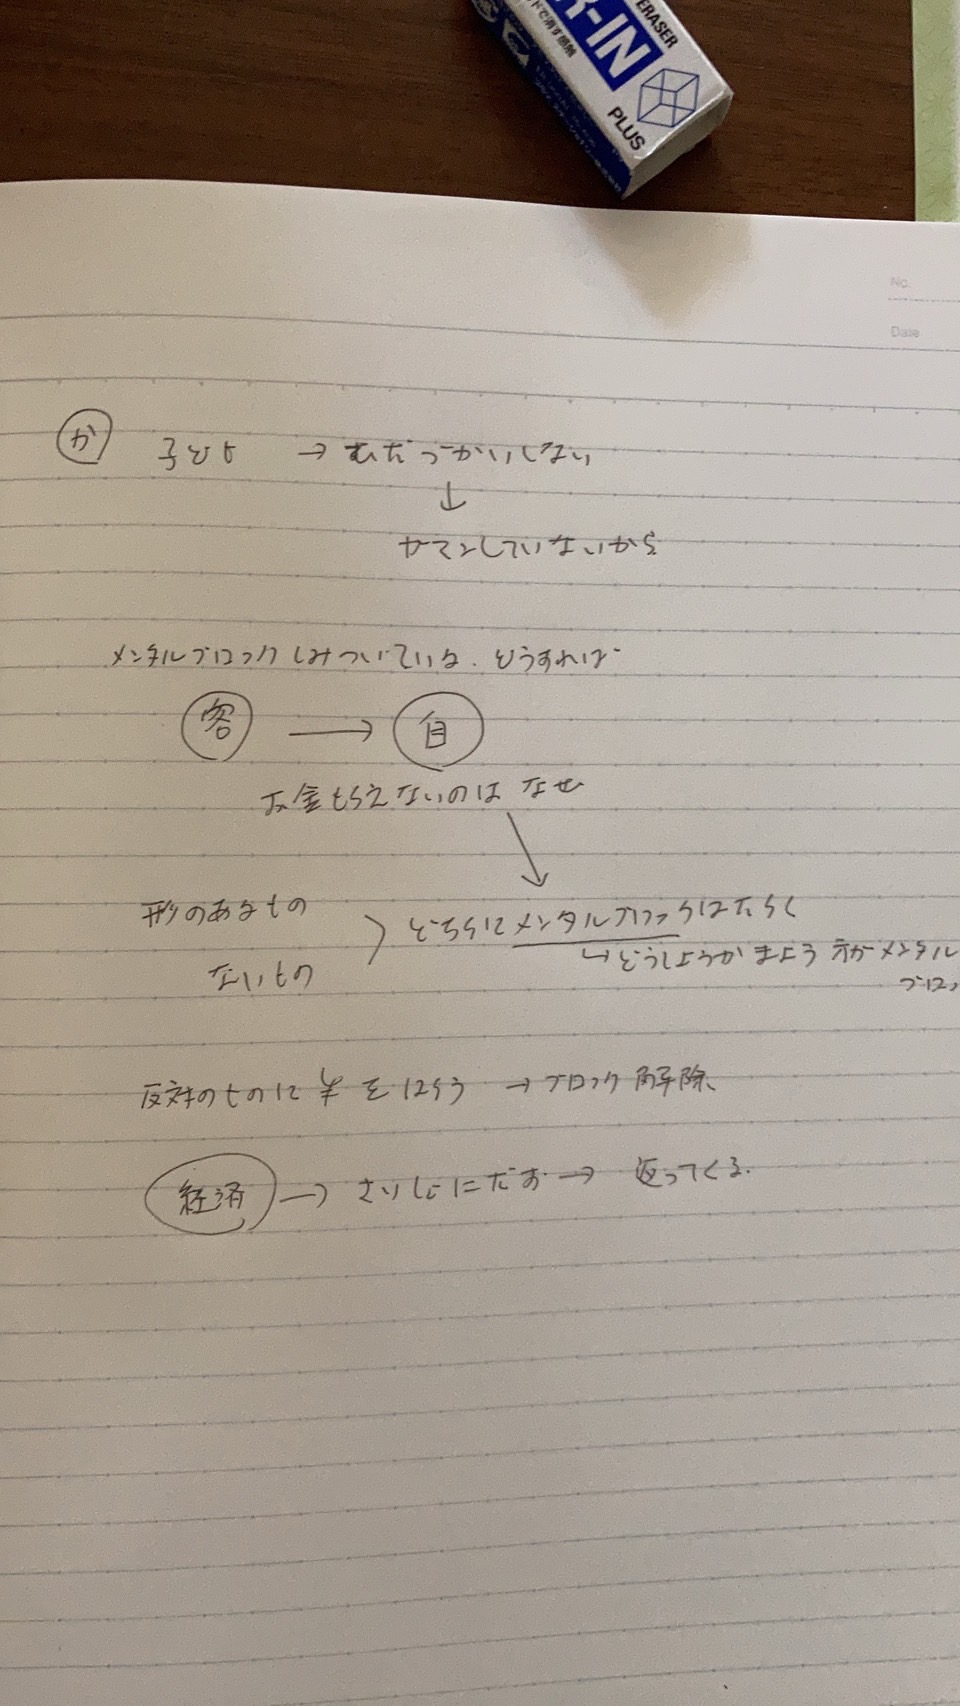 ERASER
R-IN
PLUS
No.
Date
か 子ども → むだづかいしない
↓
ガマンしていないから
メンタルブロックしみついている. どうすれば
客 → 自
お金もらえないのは なぜ
形のあるもの
ないもの
どちらにメンタルブロックはたらく
→どうしようかまよう 方がメンタル
ブロッ
反対のものに ¥ をはらう → ブロック解除、
経済 → さいしょにだす → 返ってくる.